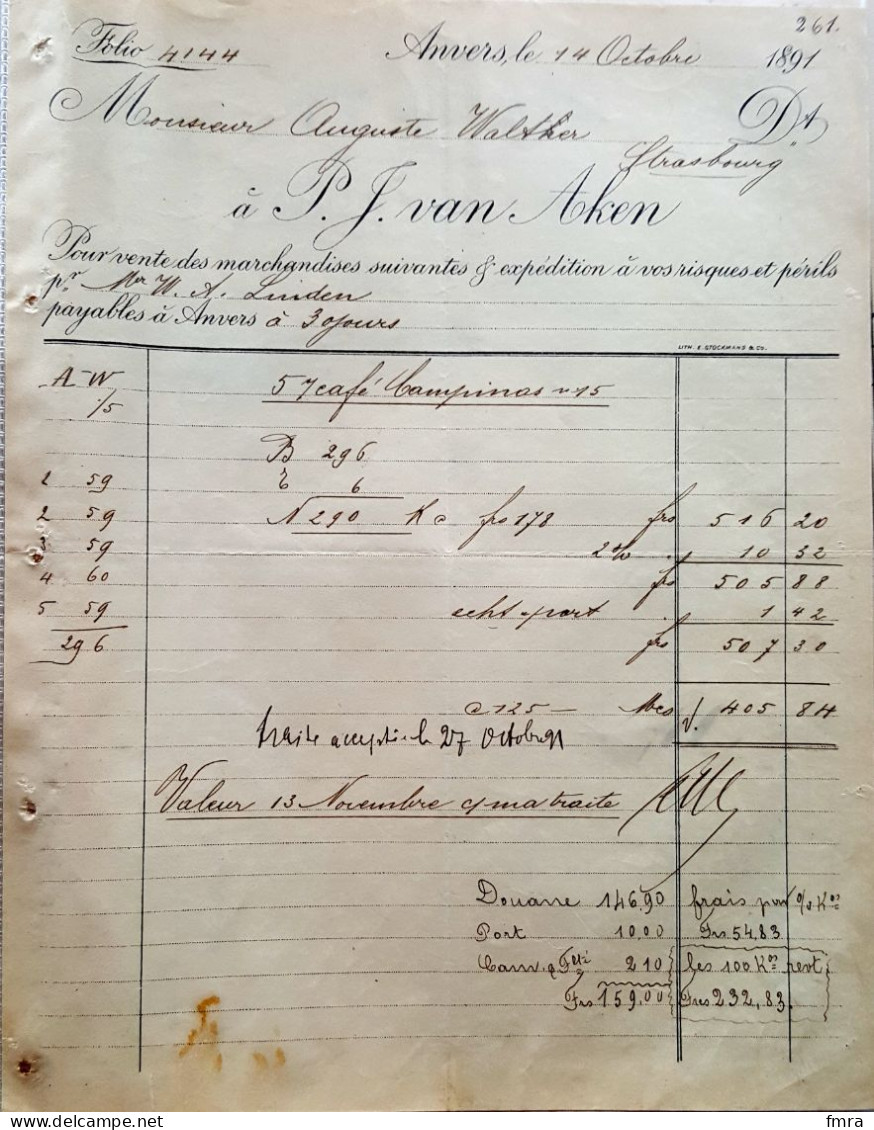 261.
Folio 4144 Anvers, le 14 Octobre 1891
Monsieur Auguste Walther Dt
Strasbourg
à P. J. van Aken
Pour vente des marchandises suivantes & expédition à vos risques et périls
pr Mr W. A. Linden
payables à Anvers à 30 jours
LITH. E. STOCKMANS & Co.
A W 5 café Campinas n 15
1/5
B 296
1 59 T 6
2 59 N 290 Ko frs 178 frs 516 20
3 59 2% . 10 32
4 60 frs 505 88
5 59 port . 1 42
296 frs 507 30
a 125 — Mcs 405 84
traite acceptée le 27 Octobre 91
Valeur 13 Novembre c/ ma traite
Douane 146.90 frais par % Kos
Port 10.00 Frs 54.83
Cam. 2 10 les 100 Kos revt
Frs 159.00 Frs 232,83.
fmra